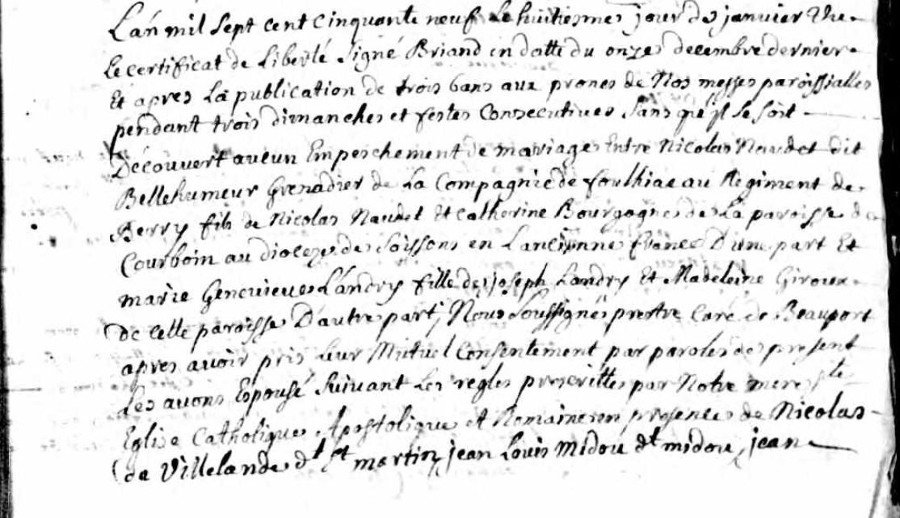 L'an mil sept cent cinquante neuf le huitiesme jour de janvier vue
le certificat de Liberté signé Briand en datte du onze decembre dernier
Et apres La publication de trois bans aux prones de Nos messes paroissialles
pendant trois dimanches et festes Consecutives sans qu'il se soit
Découvert aucun Empeschement de mariage entre Nicolas Naudet dit
Bellehumeur Grenadier de La Compagnie de foulhiac au Regiment de
Berry fils de Nicolas Naudet Et Catherine Bourgogne de La paroisse de
Courboin au dioceze de Soissons en L'ancienne france D'une part Et
marie Genevieve Landry fille de joseph Landry Et Madeleine Giroux
De cette paroisse D'autre part, Nous soussigné prestre Curé de Beauport
apres avoir pris leur Mutuel Consentement par paroles de present
Les avons Espousé suivant Les regles prescrittes par Notre mere ste
Eglise Catholique Apostolique et Romaine en presence de Nicolas
de Villelande dt St martin, jean Louis Midou dt midou, jean